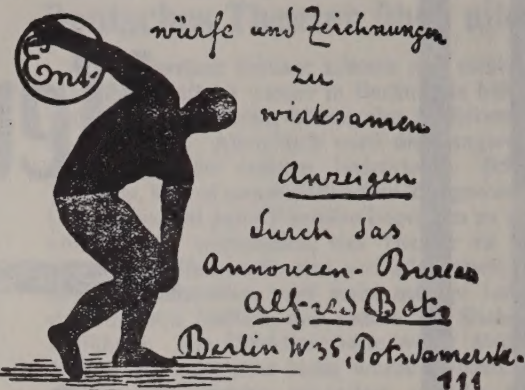 Ent-
würfe und Zeichnungen
zu
wirksamen
Anzeigen
durch das
Annoncen-Bureau
Alfred
Berlin W 35, Potsdamerstr.
111